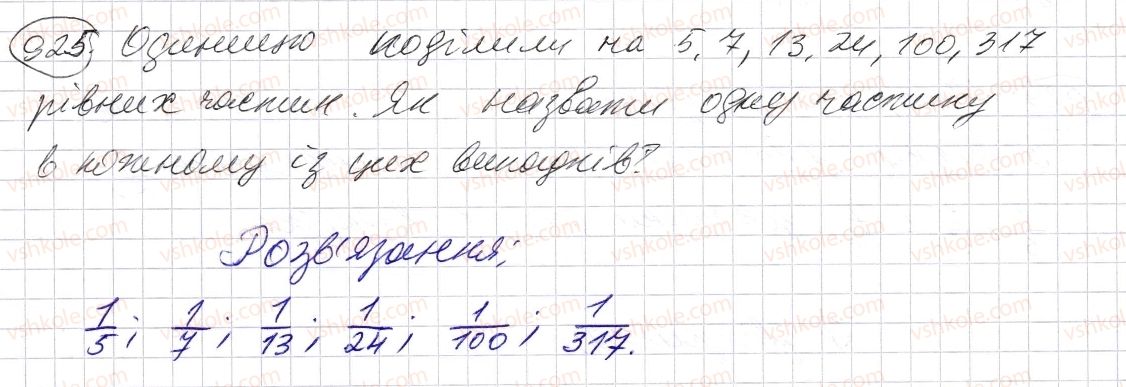 925, Одиницю поділили на 5, 7, 13, 24, 100, 317
рівних частин. Як назвати одну частину
в кожному із цих випадків?
Розв'язання:
1/5; 1/7; 1/13; 1/24; 1/100; 1/317.